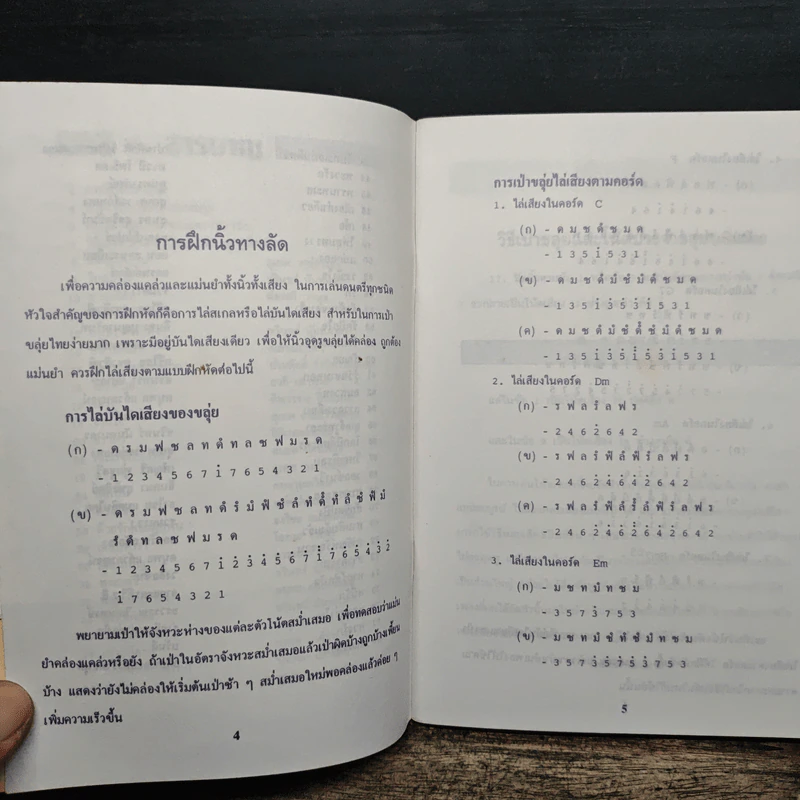 การฝึกนิ้วทางลัด
เพื่อความคล่องแคล่วและแม่นยำทั้งนิ้วทั้งเสียง ในการเล่นดนตรีทุกชนิด
หัวใจสำคัญของการฝึกหัดก็คือการไล่สเกลหรือไล่บันไดเสียง สำหรับในการเป่า
ขลุ่ยไทยง่ายมาก เพราะมีอยู่บันไดเสียงเดียว เพื่อให้นิ้วอุดรูขลุ่ยได้คล่อง ถูกต้อง
แม่นยำ ควรฝึกไล่เสียงตามแบบฝึกหัดต่อไปนี้
การไล่บันไดเสียงของขลุ่ย
(ก) - ด ร ม ฟ ซ ล ท ดํ ท ล ซ ฟ ม ร ด
- 1 2 3 4 5 6 7 1̇ 7 6 5 4 3 2 1
(ข) - ด ร ม ฟ ซ ล ท ดํ รํ มํ ฟํ ซํ ลํ ทํ ดํํ ทํ ลํ ซํ ฟํ มํ
รํ ดํ ท ล ซ ฟ ม ร ด
- 1 2 3 4 5 6 7 1̇ 2̇ 3̇ 4̇ 5̇ 6̇ 7̇ 1̈ 7̇ 6̇ 5̇ 4̇ 3̇ 2̇
1̇ 7 6 5 4 3 2 1
พยายามเป่าให้จังหวะห่างของแต่ละตัวโน้ตสม่ำเสมอ เพื่อทดสอบว่าแม่น
ยำคล่องแคล่วหรือยัง ถ้าเป่าในอัตราจังหวะสม่ำเสมอแล้วเป่าผิดบ้างถูกบ้างเพี้ยน
บ้าง แสดงว่ายังไม่คล่องให้เริ่มต้นเป่าช้า ๆ สม่ำเสมอใหม่พอคล่องแล้วค่อย ๆ
เพิ่มความเร็วขึ้น
4
การเป่าขลุ่ยไล่เสียงตามคอร์ด
1. ไล่เสียงในคอร์ด C
(ก) - ด ม ซ ดํ ซ ม ด
- 1 3 5 1̇ 5 3 1
(ข) - ด ม ซ ดํ มํ ซํ มํ ดํ ซ ม ด
- 1 3 5 1̇ 3̇ 5̇ 3̇ 1̇ 5 3 1
(ค) - ด ม ซ ดํ มํ ซํ ดํํ ซํ มํ ดํ ซ ม ด
- 1 3 5 1̇ 3̇ 5̇ 1̈ 5̇ 3̇ 1̇ 5 3 1
2. ไล่เสียงในคอร์ด Dm
(ก) - ร ฟ ล รํ ล ฟ ร
- 2 4 6 2̇ 6 4 2
(ข) - ร ฟ ล รํ ฟํ ลํ ฟํ รํ ล ฟ ร
- 2 4 6 2̇ 4̇ 6̇ 4̇ 2̇ 6 4 2
(ค) - ร ฟ ล รํ ฟํ ลํ รํํ ลํ ฟํ รํ ล ฟ ร
- 2 4 6 2̇ 4̇ 6̇ 2̈ 6̇ 4̇ 2̇ 6 4 2
3. ไล่เสียงในคอร์ด Em
(ก) - ม ซ ท มํ ท ซ ม
- 3 5 7 3̇ 7 5 3
(ข) - ม ซ ท มํ ซํ ทํ ซํ มํ ท ซ ม
- 3 5 7 3̇ 5̇ 7̇ 5̇ 3̇ 7 5 3
5